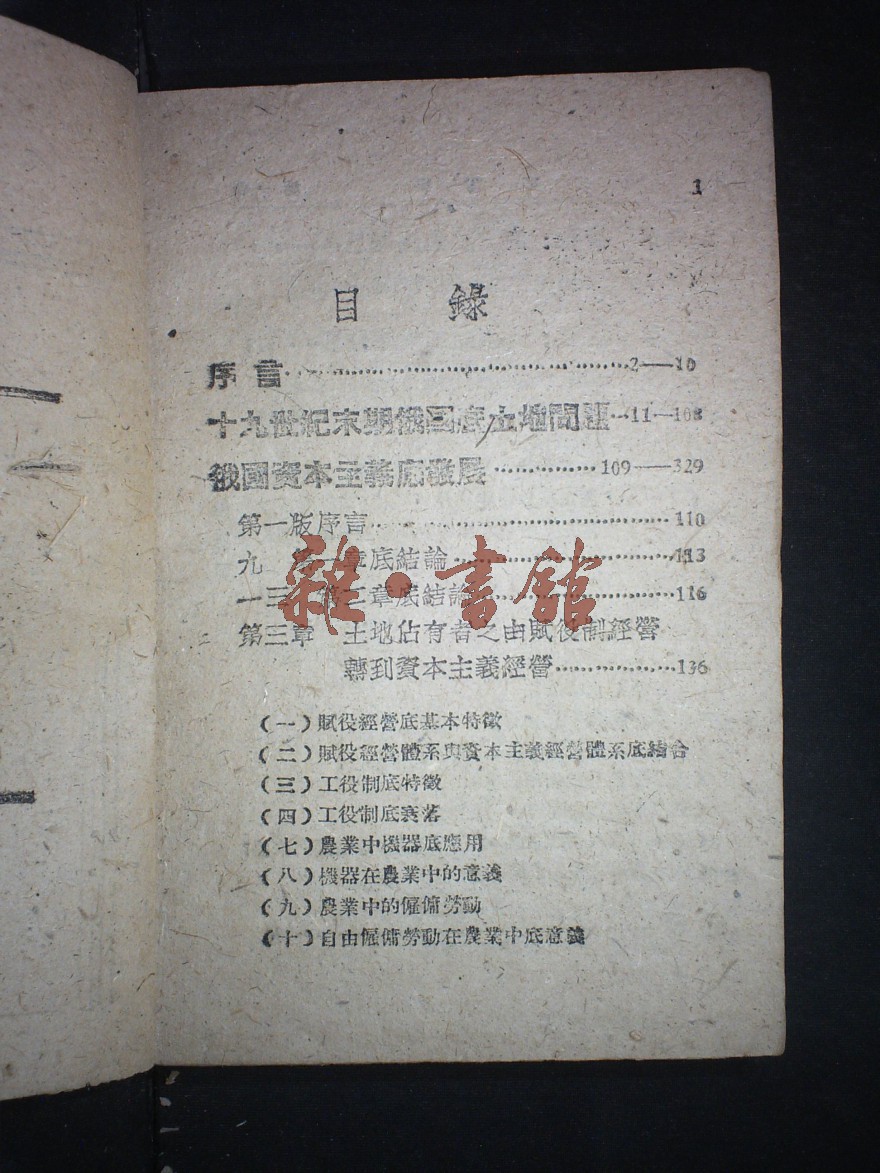 1
目 錄
序言 2——10
十九世紀末期俄國底土地問題 11—108
俄國資本主義底發展 109——329
第一版序言 110
九 一章底結論 113
一三 第二章底結論 116
第三章 土地佔有者之由賦役制經營
轉到資本主義經營 136
(一)賦役經營底基本特徵
(二)賦役經營體系與資本主義經營體系底結合
(三)工役制底特徵
(四)工役制底衰落
(七)農業中機器底應用
(八)機器在農業中的意義
(九)農業中的僱傭勞動
(十)自由僱傭勞動在農業中底意義
雜·書館